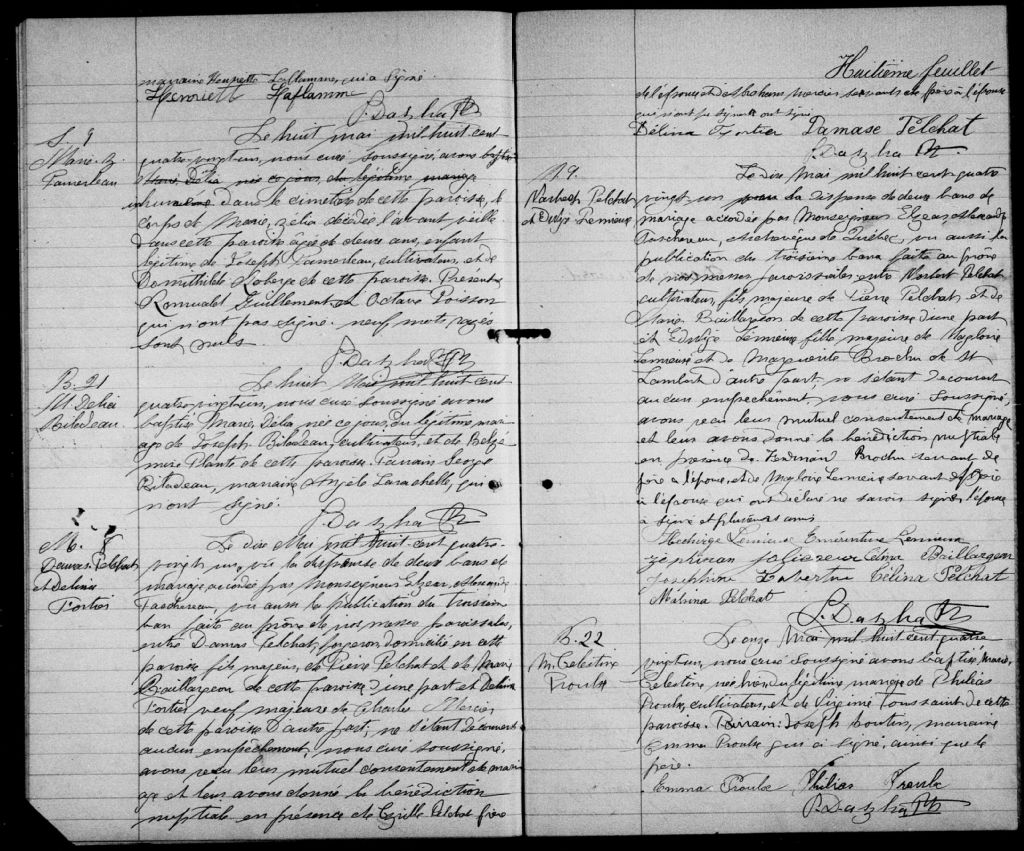 marraine Henriette Laflamme, qui a signé.
Henriett Haflamme
S. 9
Marie Z.
Pamerleau
Le huit mai mil huit cent
quatre-vingt un, nous curé soussigné, avons baptisé
Marie, Délia née ce jour, du légitime mariage
inhumé dans le cimetière de cette paroisse, le
corps de Marie, Zélia décédée l'avant veille
dans cette paroisse âgée de deux ans, enfant
légitime de Joseph Pamerleau, cultivateur, et de
Domithilde Roberge de cette paroisse. Présents
Romuald Guillemette Octave Poisson
qui n'ont pas signé. neuf mots rayés
sont nuls
B. 21
M Delia
Bilodeau.
Le huit Mai mil huit cent
quatre-vingt un, nous curé soussigné avons
baptisé Marie, Délia, née ce jour, du légitime mari-
age de Joseph Bilodeau, cultivateur, et de
Plante de cette paroisse. Parrain George
Bilodeau, marraine Angèle Larochelle, qui
n'ont signé.
M. 8
Damase Pelchat
et Delima
Fortier
Le dix Mai mil huit-cent quatre-
vingt un, vu la dispense de deux bans de
mariage accordée par Monseigneur Elzear Alexandre
Taschereau, vu aussi la publication du troisième
ban faite au prône de nos messes paroissiales,
entre Damas Pelchat, forgeron domicilié en cette
paroisse fils majeur, de Pierre Pelchat et de Marie
Baillargeon de cette paroisse d'une part et Delima
Fortier veuf majeure de Charles Mercier
de cette paroisse d'autre part; ne s'étant découvert
aucun empêchement, nous curé soussigné,
avons reçu leur mutuel consentement de mari-
age et leur avons donné la bénédiction
nuptiale en présence de Cyrille Pelchat frère
Huitième feuillet
de l'epoux et de Abraham Mercier servants de frère à l'épouse
qui n'ont pu signer ont signé
Délina Fortier Damase Pelchat
M 9.
Norbert Pelchat
et Edwige Lemieux
Le dix Mai mil huit cent quatre
vingt-un vu la dispense de deux bans de
mariage accordée par Monseigneur Elzear Alexandre
Taschereau, Archevêque de Québec, vu aussi la
publication du troisième bans faite au prône
de nos messes paroissiales entre Norbert Pelchat
cultivateur, fils majeure de Pierre Pelchat et de
Marie Baillargeon de cette paroisse d'une part
et Edwige Lemieux fille majeure de Magloire
Lemieux et de Marguerite Brochu de St
Lambert d'autre part. ne s'étant découvert
aucun empêchement, nous curé soussigné,
avons reçu leur mutuel consentement de mariage
et leur avons donné la bénédiction nuptiale
en présence de Brochu servant de
père à l'époux, et de Magloire Lemieux servant de père
à l'épouse qui ont déclaré ne savoir signer, l'épouse
a signé et plusieurs amis
Hedwige Lemieux Lemieux
Célina Baillargeon
Josephine Célina Pelchat
Malvina Pelchat
B. 22
M. Celestine
Proulx
Le onze Mai mil huit cent quatre
vingt un, nous curé soussigné avons baptisé, Marie,
Celestine née hier du légitime mariage de Philéas
Proulx, cultivateur, et de Virginie Toussaint de cette
paroisse. Parrain: Joseph Boutin, marraine
Emma Proulx qui a signé, ainsi que le
père.
Emma Proulx Philias Proulx